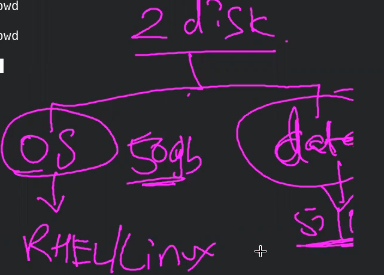 owd
owd
2 disk.
OS 50gb data
RHEL/Linux